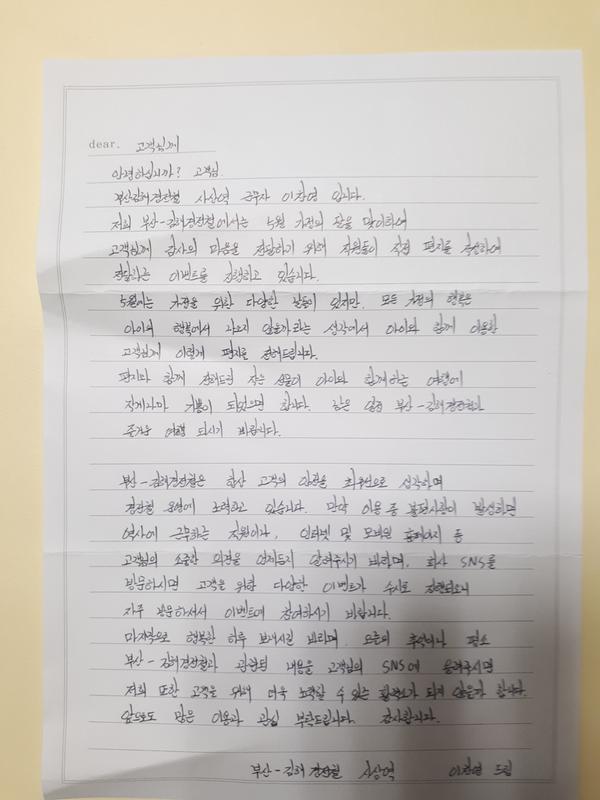 dear. 고객님께
안녕하십니까? 고객님.
부산김해경전철 사상역 근무자 이창영 입니다.
저희 부산-김해경전철에서는 5월 가정의 달을 맞이하여
고객님께 감사의 마음을 전달하기 위해 직원들이 직접 편지를 작성하여
전달하는 이벤트를 진행하고 있습니다.
5월에는 가정을 위한 다양한 날들이 있지만, 모든 가정의 행복은
아이의 행복에서 나오지 않을까 라는 생각에서 아이와 함께 이용한
고객님께 이렇게 편지를 전해드립니다.
편지와 함께 전해드린 작은 선물이 아이와 함께하는 여행에
작게나마 기쁨이 되었으면 합니다. 남은 일정 부산-김해경전철과
즐거운 여행 되시기 바랍니다.
부산-김해경전철은 항상 고객의 안전을 최우선으로 생각하며
경전철 운영에 노력하고 있습니다. 만약 이용 중 불편사항이 발생하면
역사에 근무하는 직원이나, 인터넷 및 모바일 홈페이지 등
고객님의 소중한 의견을 언제든지 알려주시기 바라며, 회사 SNS를
방문하시면 고객을 위한 다양한 이벤트가 수시로 진행되오니
자주 방문하셔서 이벤트에 참여하시기 바랍니다.
마지막으로 행복한 하루 보내시길 바라며, 오늘의 추억이나 평소
부산-김해경전철과 관련된 내용을 고객님의 SNS에 올려주시면
저희 또한 고객을 위해 더욱 노력할 수 있는 활력소가 되지 않을까 합니다.
앞으로도 많은 이용과 관심 부탁드립니다. 감사합니다.
부산-김해경전철 사상역 이창영 드림